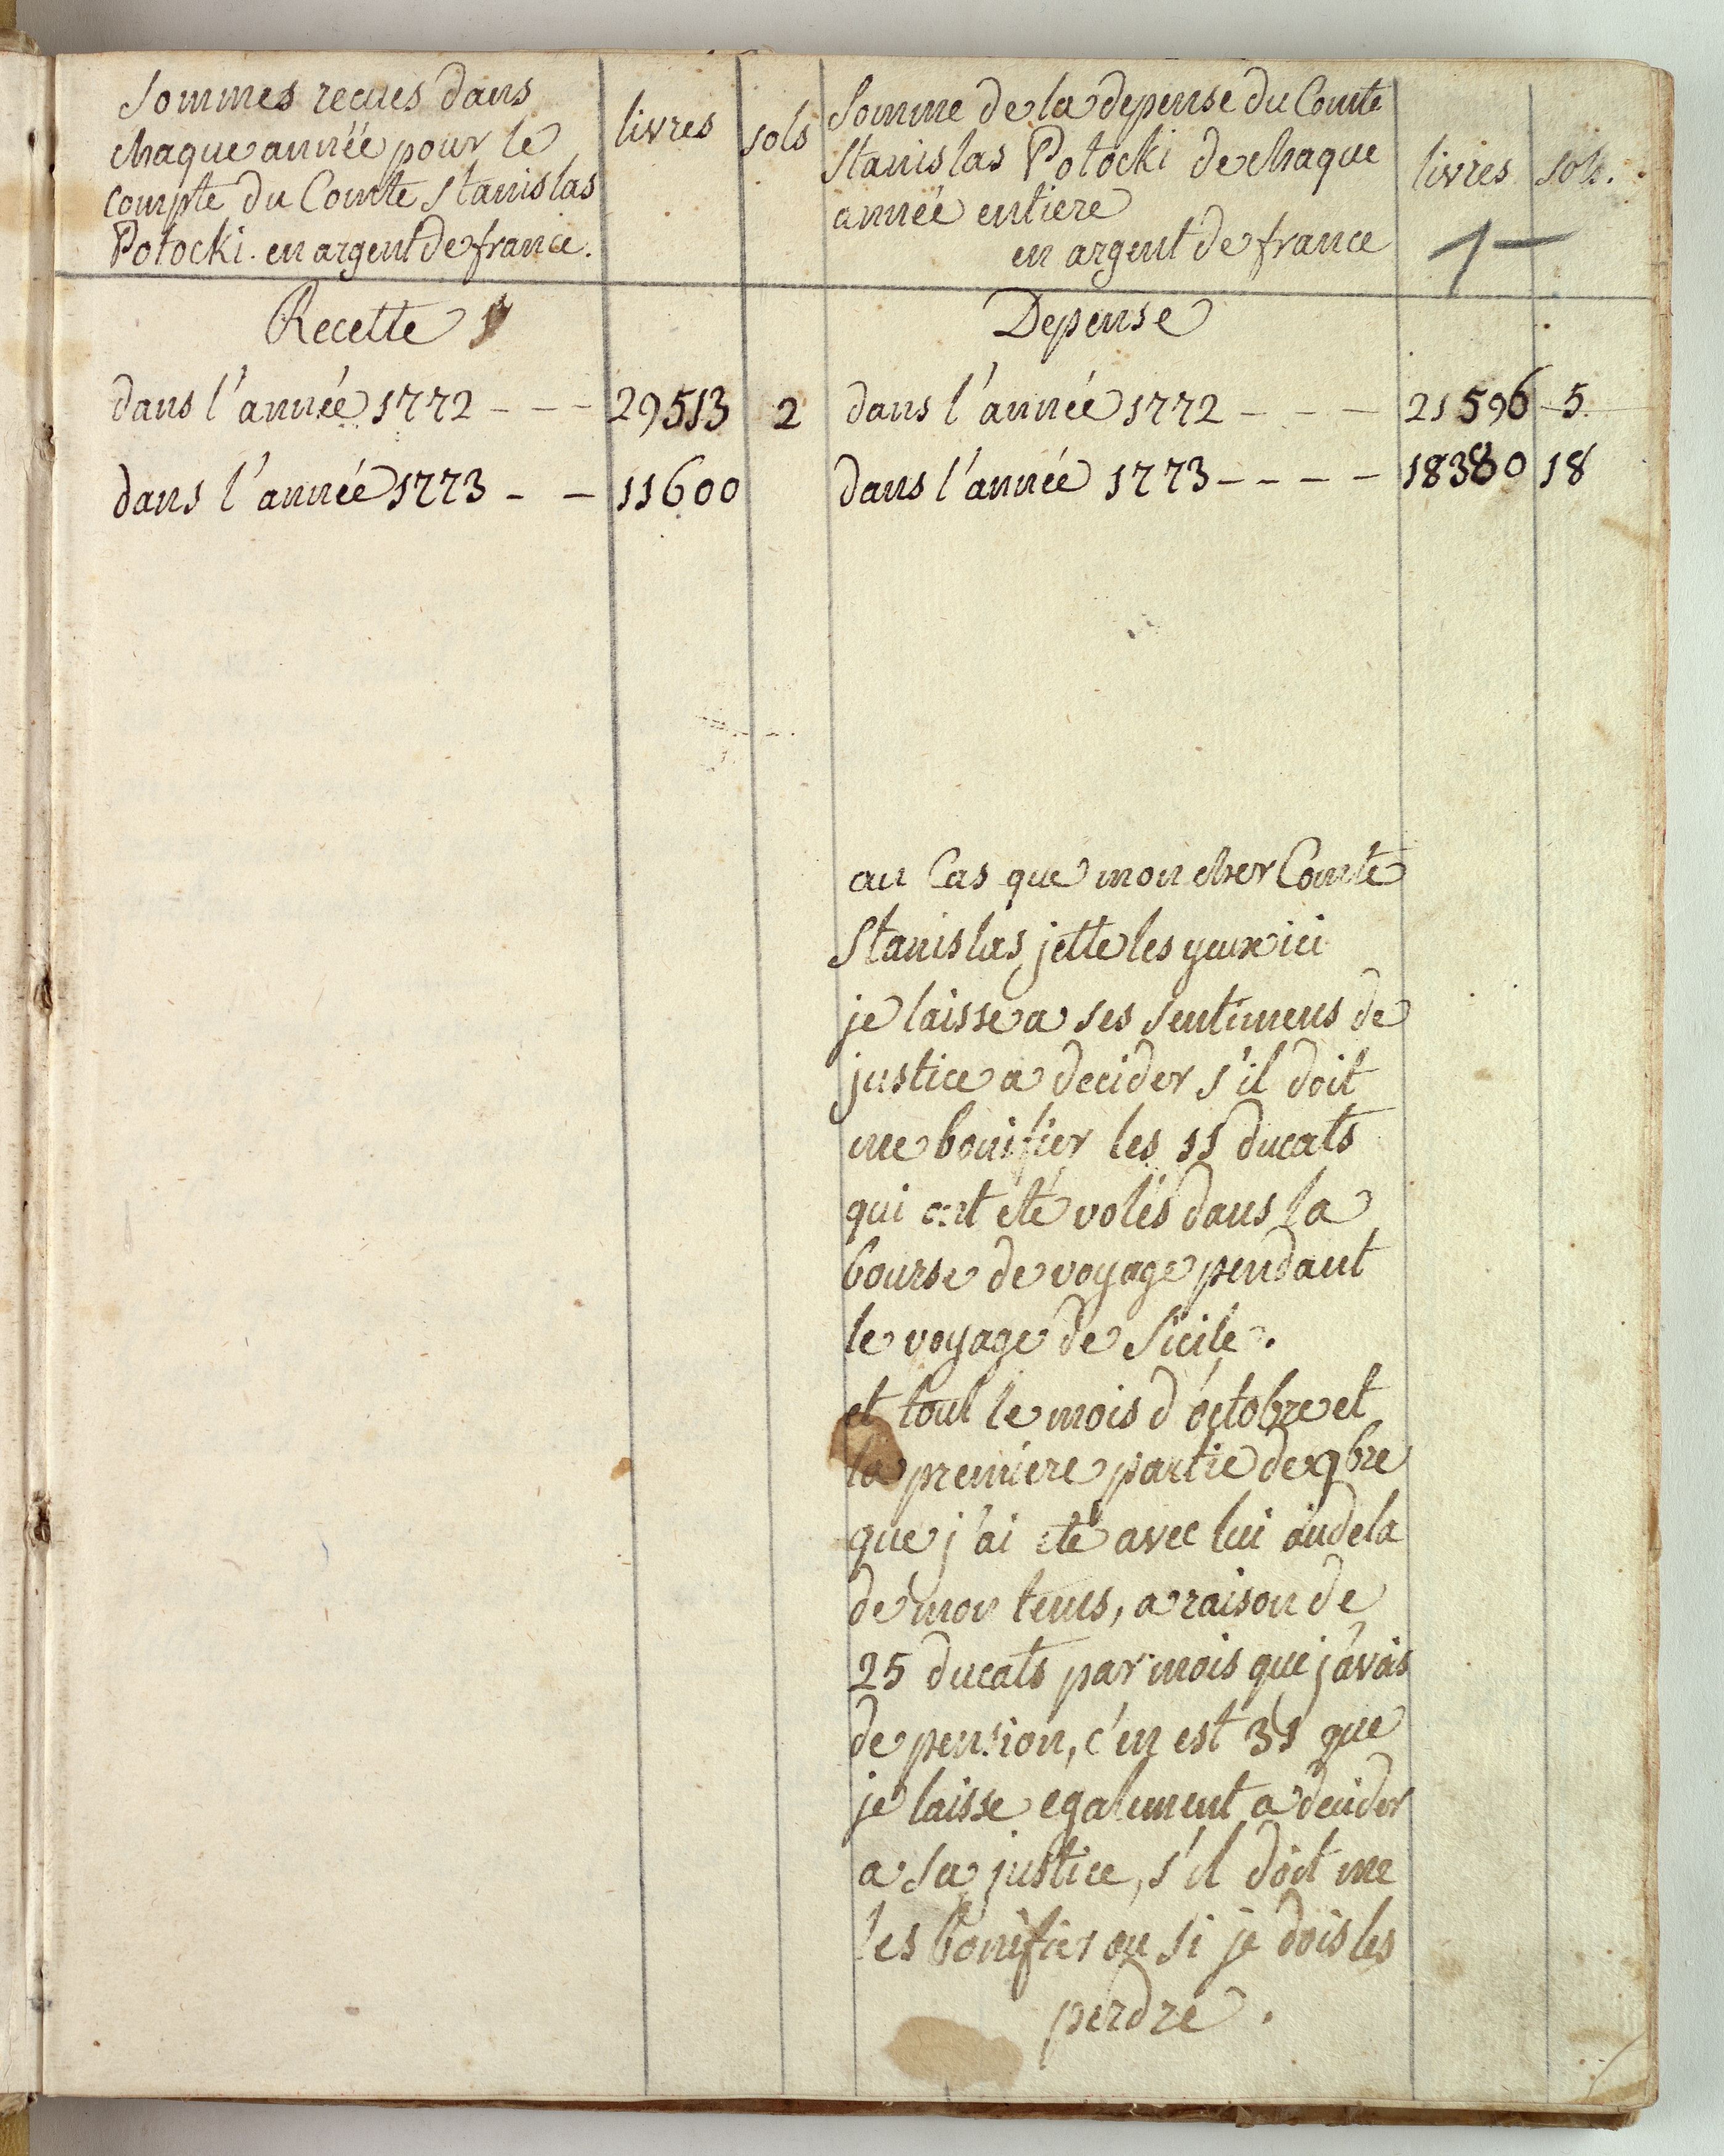 Sommes recues dans
chaque année pour le
compte du Comte Stanislas
Potocki. en argent de france.
livres
sols
Somme de la depense du Comte
Stanislas Potocki de chaque
année entiere
en argent de france
livres
sols.
1
Recette
Depense
dans l'année 1772 - - - 29513 2
dans l'année 1772 - - - 21596 5.
dans l'année 1773 - - 11600
dans l'année 1773 - - - - 18380 18
au Cas que mon cher Comte
Stanislas jette les yeux ici
je laisse a ses sentimens de
justice a decider s'il doit
me bonifier les 11 ducats
qui ont eté volés dans la
bourse de voyage pendant
le voyage de Sicile.
et tout le mois d'octobre et
la premiere partie de 9bre
que j'ai eté avec lui audela
de mon tems, a raison de
25 ducats par mois que j'avais
de pension, c'en est 31 que
je laisse egalement a decider
a sa justice, s'il doit me
les bonifier ou si je dois les
perdre.